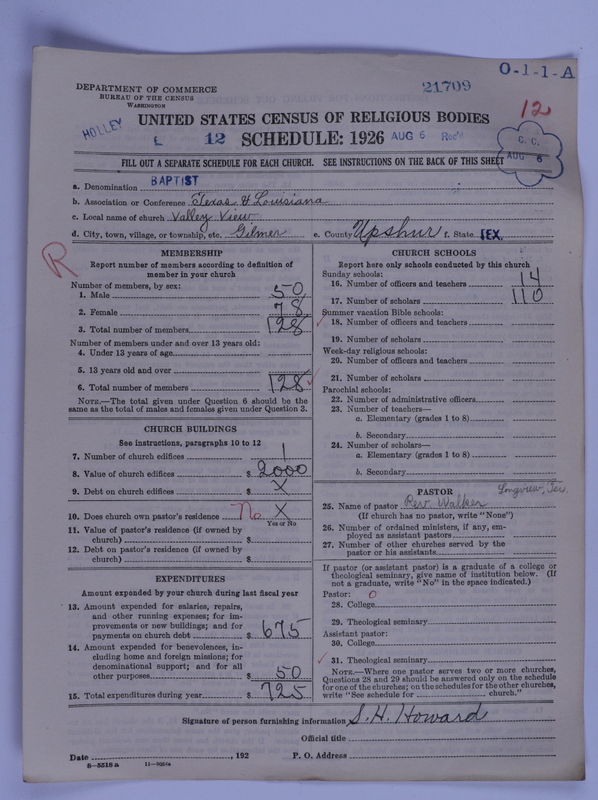 DEPARTMENT OF COMMERCE
BUREAU OF THE CENSUS
WASHINGTON
21709
O-1-1-A
12
UNITED STATES CENSUS OF RELIGIOUS BODIES
HOLLEY
L 12 SCHEDULE: 1926 AUG 6 Rec'd
C. C.
AUG 6
FILL OUT A SEPARATE SCHEDULE FOR EACH CHURCH. SEE INSTRUCTIONS ON THE BACK OF THIS SHEET
a. Denomination BAPTIST
b. Association or Conference Texas & Louisiana
c. Local name of church Valley View
d. City, town, village, or township, etc. Gilmer e. County Upshur f. State TEX.
R
MEMBERSHIP
Report number of members according to definition of
member in your church
Number of members, by sex:
1. Male 50
2. Female 78
3. Total number of members 128
Number of members under and over 13 years old:
4. Under 13 years of age
5. 13 years old and over
6. Total number of members 128
NOTE.—The total given under Question 6 should be the
same as the total of males and females given under Question 3.
CHURCH BUILDINGS
See instructions, paragraphs 10 to 12
7. Number of church edifices 1
8. Value of church edifices $ 2000
9. Debt on church edifices $ X
10. Does church own pastor's residence No X
Yes or No
11. Value of pastor's residence (if owned by
church) $
12. Debt on pastor's residence (if owned by
church) $
EXPENDITURES
Amount expended by your church during last fiscal year
13. Amount expended for salaries, repairs,
and other running expenses; for im-
provements or new buildings; and for
payments on church debt $ 675
14. Amount expended for benevolences, in-
cluding home and foreign missions; for
denominational support; and for all
other purposes $ 50
15. Total expenditures during year $ 725
CHURCH SCHOOLS
Report here only schools conducted by this church
Sunday schools:
16. Number of officers and teachers 14
17. Number of scholars 110
Summer vacation Bible schools:
18. Number of officers and teachers
19. Number of scholars
Week-day religious schools:
20. Number of officers and teachers
21. Number of scholars
Parochial schools:
22. Number of administrative officers
23. Number of teachers—
a. Elementary (grades 1 to 8)
b. Secondary
24. Number of scholars—
a. Elementary (grades 1 to 8)
b. Secondary
PASTOR Longview, Tex.
25. Name of pastor Rev. Walker
(If church has no pastor, write "None")
26. Number of ordained ministers, if any, em-
ployed as assistant pastors
27. Number of other churches served by the
pastor or his assistants
If pastor (or assistant pastor) is a graduate of a college or
theological seminary, give name of institution below. (If
not a graduate, write "No" in the space indicated.)
Pastor: 0
28. College
29. Theological seminary
Assistant pastor:
30. College
31. Theological seminary
NOTE.—Where one pastor serves two or more churches,
Questions 28 and 29 should be answered only on the schedule
for one of the churches; on the schedules for the other churches,
write "See schedule for church."
Signature of person furnishing information S. H. Howard
Official title
Date , 192 P. O. Address
8-5518 a